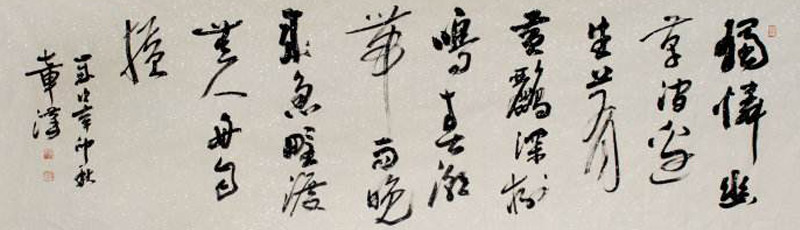 獨憐幽
草澗邊
生上有
黄鸝深樹
鳴春潮
帶雨晚
來急野渡
無人舟自
横
歲次辛卯秋
章